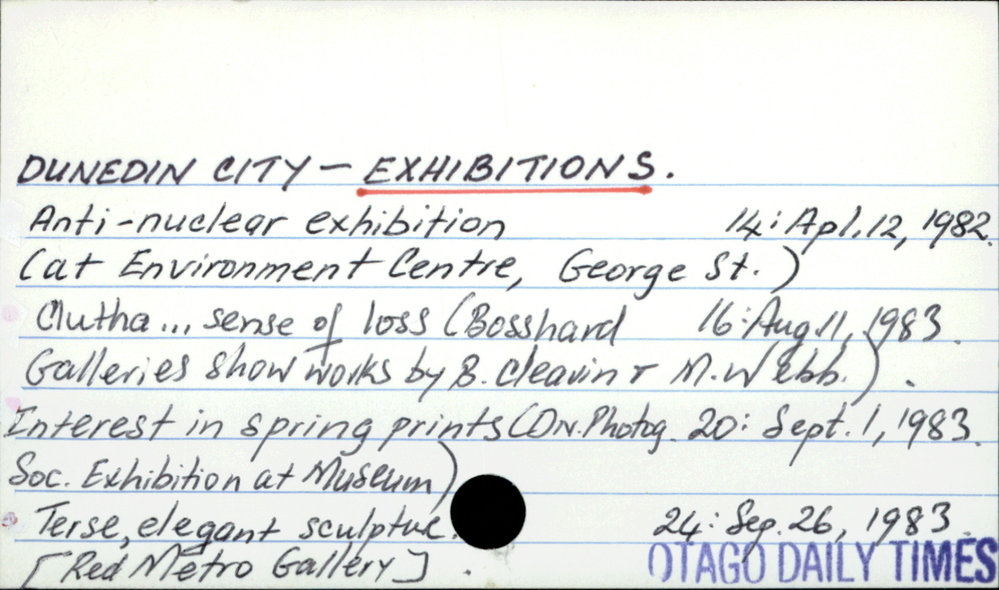 DUNEDIN CITY – EXHIBITIONS.
Anti-nuclear exhibition 14: Apl. 12, 1982.
(at Environment Centre, George St.)
Clutha... sense of loss (Bosshard 16: Aug. 11, 1983.
Galleries show works by B. Cleavin & M. Webb.) .
Interest in spring prints (DN. Photog. 20: Sept. 1, 1983.
Soc. Exhibition at Museum)
Terse, elegant sculptue. 24: Sep. 26, 1983.
[Red Metro Gallery] .
OTAGO DAILY TIMES